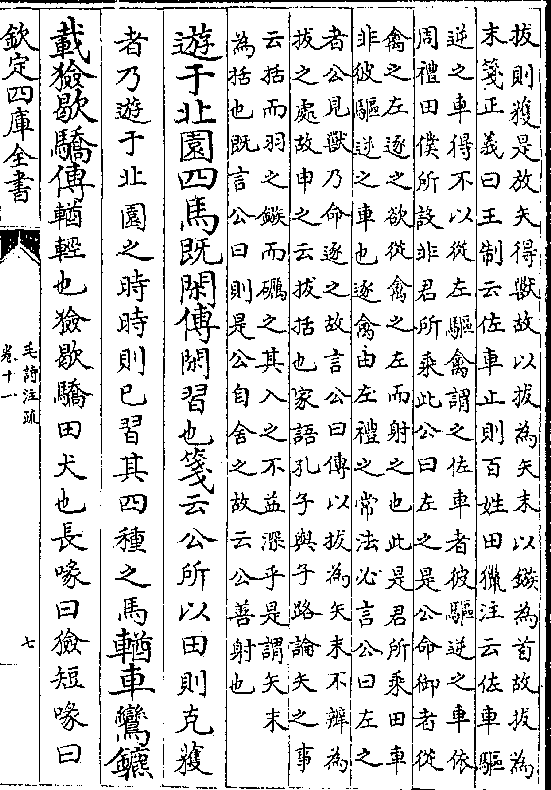 拔則獲是放矢得獸故以拔為矢末以鏃為首故拔為
末箋正義曰王制云佐車止則百姓田獵注云佐車驅
逆之車得不以從左驅禽謂之佐車者彼驅逆之車依
周禮田僕所設非君所乘此公曰左之是公命御者從
禽之左逐之欲從禽之左而射之也此是君所乘田車
非彼驅逆之車也逐禽由左禮之常法必言公曰左之
者公見獸乃命逐之故言公曰傳以拔為矢末不辨為
拔之處故申之云拔括也家語孔子與子路論矢之事
云括而羽之鏃而礪之其入之不益深乎是謂矢末
為括也既言公曰則是公自舍之故云公善射也
遊于北園四馬既閑傳閑習也箋云公所以田則克獲
者乃遊于北園之時時則已習其四種之馬輶車鸞鑣
載獫歇驕傳輶輕也獫歇驕田犬也長喙曰獫短喙曰
欽定四庫全書
毛詩注疏
卷十一
七